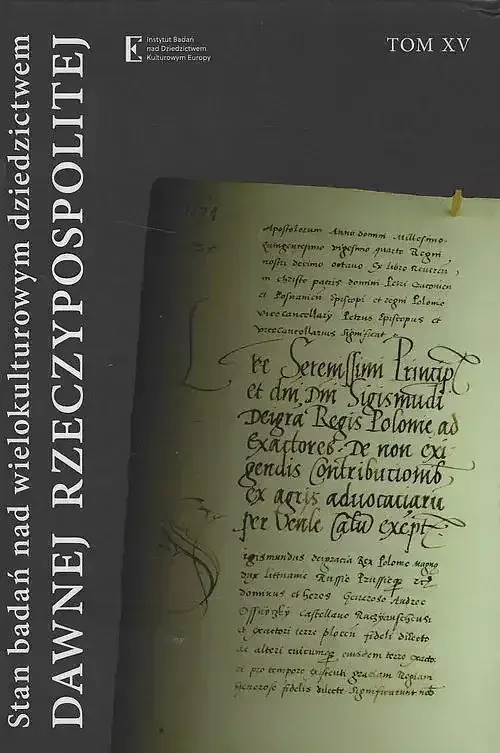 Stan badań nad wielokulturowym dziedzictwem
DAWNEJ RZECZYPOSPOLITEJ
Instytut Badań
nad Dziedzictwem
Kulturowym Europy
TOM XV
Apostolorum Anno domini Millesimo
quingentesimo vigesimo quarto Regni
nostri decimo octavo Ex libro Reveren
in christo patris domini Petri
et Posnanien Episcopi et regni Polonie
vicecancellarij Petrus Episcopus et
vicecancellarius significat
Serenissimi Principis
et dni Dni Sigismudi
Deigra Regis Polonie ad
Exactores De non exi-
gendis Contributionib
ex agris advocaciarū
per exept
igismundus deigracia Rex Polonie magnᵒ
dux littuanie Russie Prussieqꝫ
dominus et heres Generoso Andree
castellano
et exactori terre plocen fideli dilecto
ac alteri cuicumqꝫ eiusdem terre exacto
ri pro tempore existenti graciam Regiam
Generose fidelis dilecte Significarunt nob